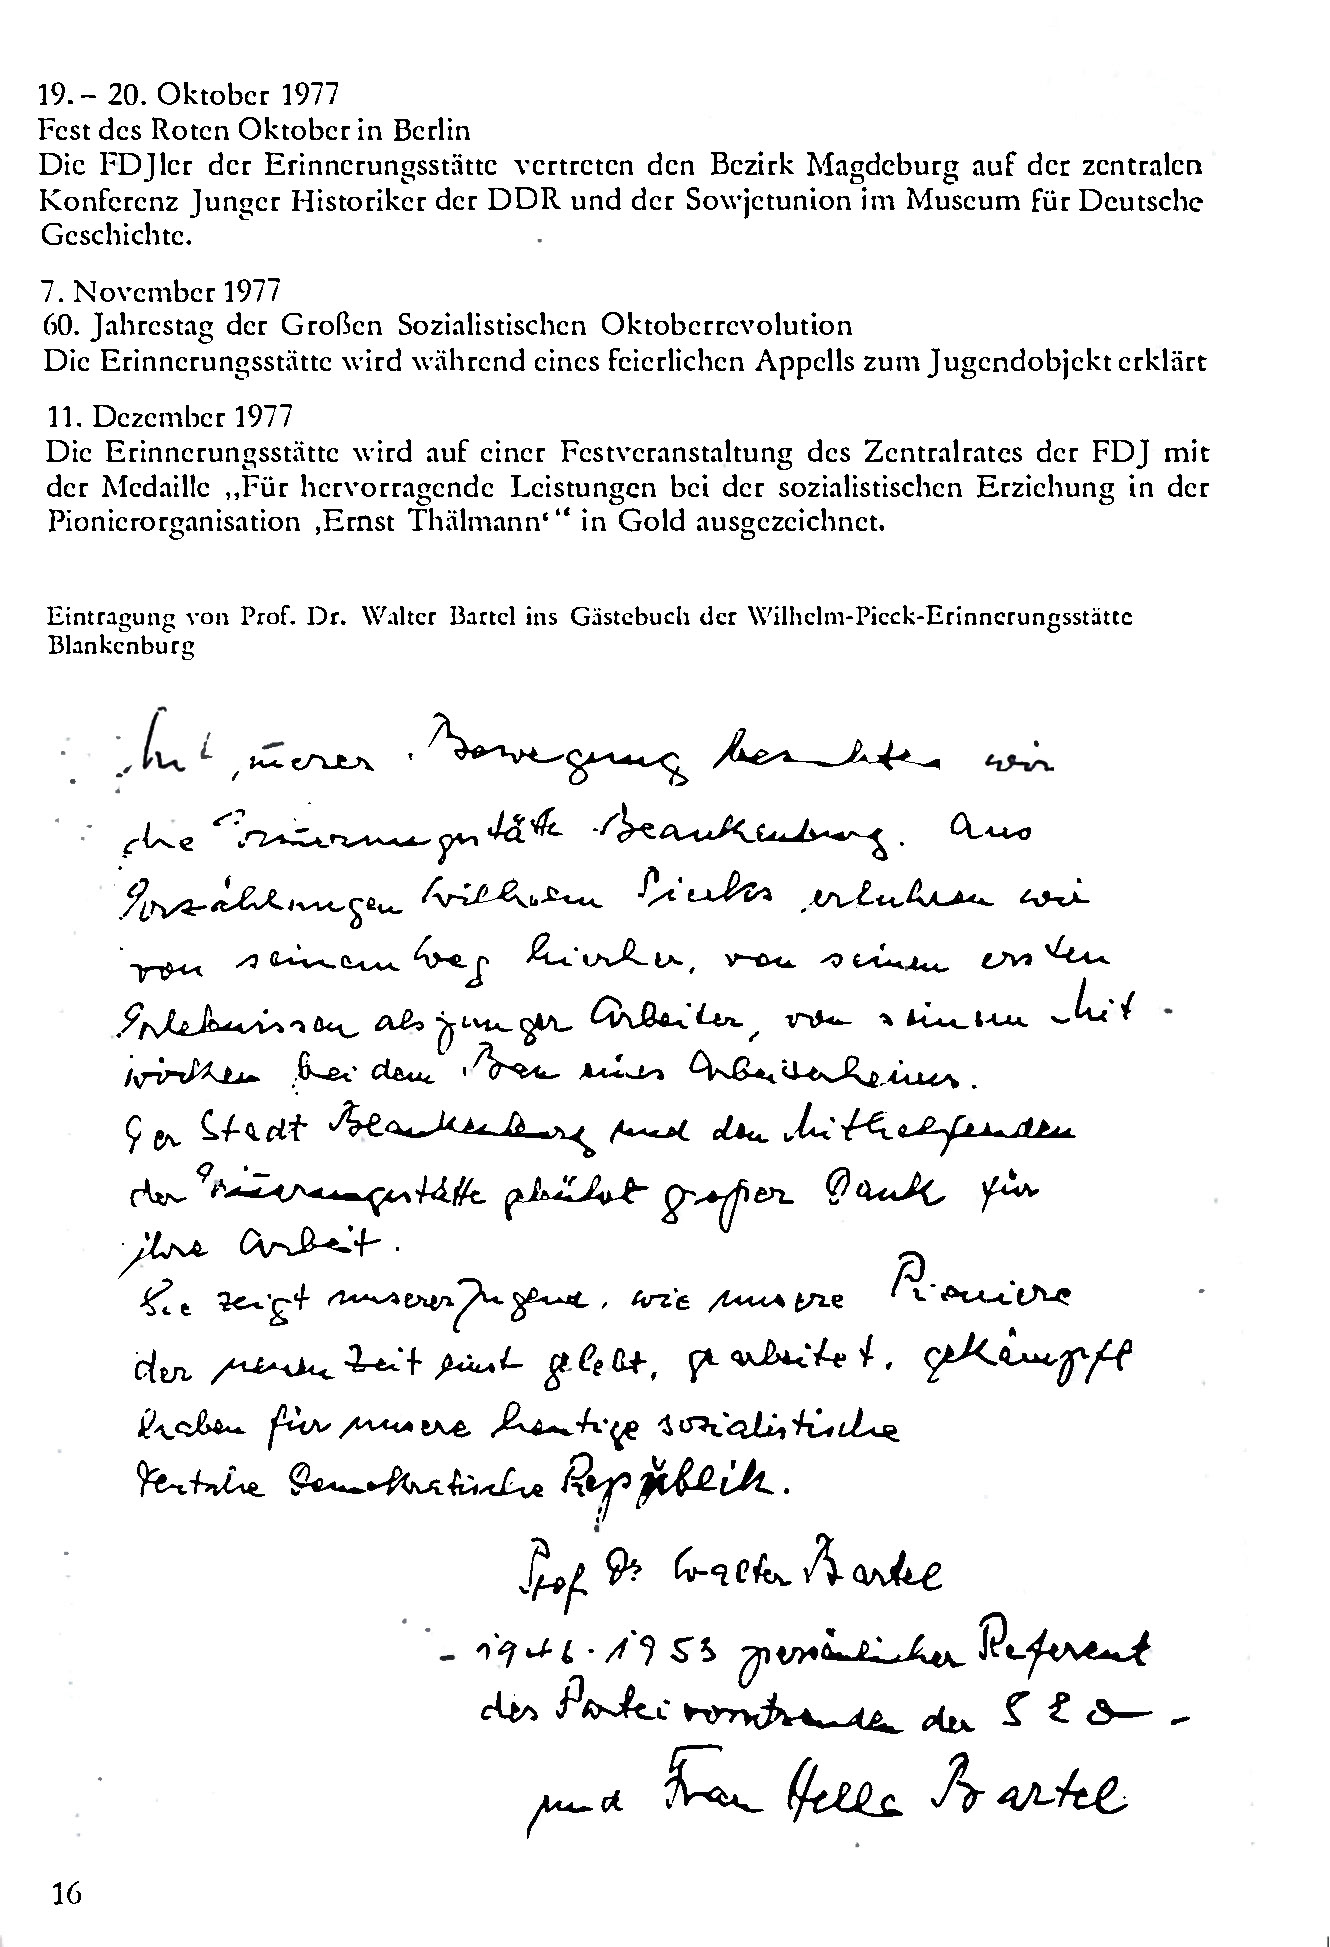 19.– 20. Oktober 1977
Fest des Roten Oktober in Berlin
Die FDJler der Erinnerungsstätte vertreten den Bezirk Magdeburg auf der zentralen
Konferenz Junger Historiker der DDR und der Sowjetunion im Museum für Deutsche
Geschichte.
7. November 1977
60. Jahrestag der Großen Sozialistischen Oktoberrevolution
Die Erinnerungsstätte wird während eines feierlichen Appells zum Jugendobjekt erklärt
11. Dezember 1977
Die Erinnerungsstätte wird auf einer Festveranstaltung des Zentralrates der FDJ mit
der Medaille „Für hervorragende Leistungen bei der sozialistischen Erziehung in der
Pionierorganisation ‚Ernst Thälmann‘“ in Gold ausgezeichnet.
Eintragung von Prof. Dr. Walter Bartel ins Gästebuch der Wilhelm-Pieck-Erinnerungsstätte
Blankenburg
Mit innerer Bewegung besuchten wir
die Erinnerungsstätte Blankenburg. Aus
Erzählungen Wilhelm Piecks erfuhren wir
von seinem Weg hierher, von seinen ersten
Erlebnissen als junger Arbeiter, von seinem Mit-
wirken bei dem Bau eines Arbeiterheimes.
Der Stadt Blankenburg und den Mithelfenden
der Erinnerungsstätte gebührt großer Dank für
ihre Arbeit.
Sie zeigt unserer Jugend, wie unsere Pioniere
der neuen Zeit einst gelebt, gearbeitet, gekämpft
haben für unsere heutige sozialistische
Deutsche Demokratische Republik.
Prof Dr Walter Bartel
- 1946-1953 persönlicher Referent
des Parteivorsitzenden der SED -
und Frau Hella Bartel
16